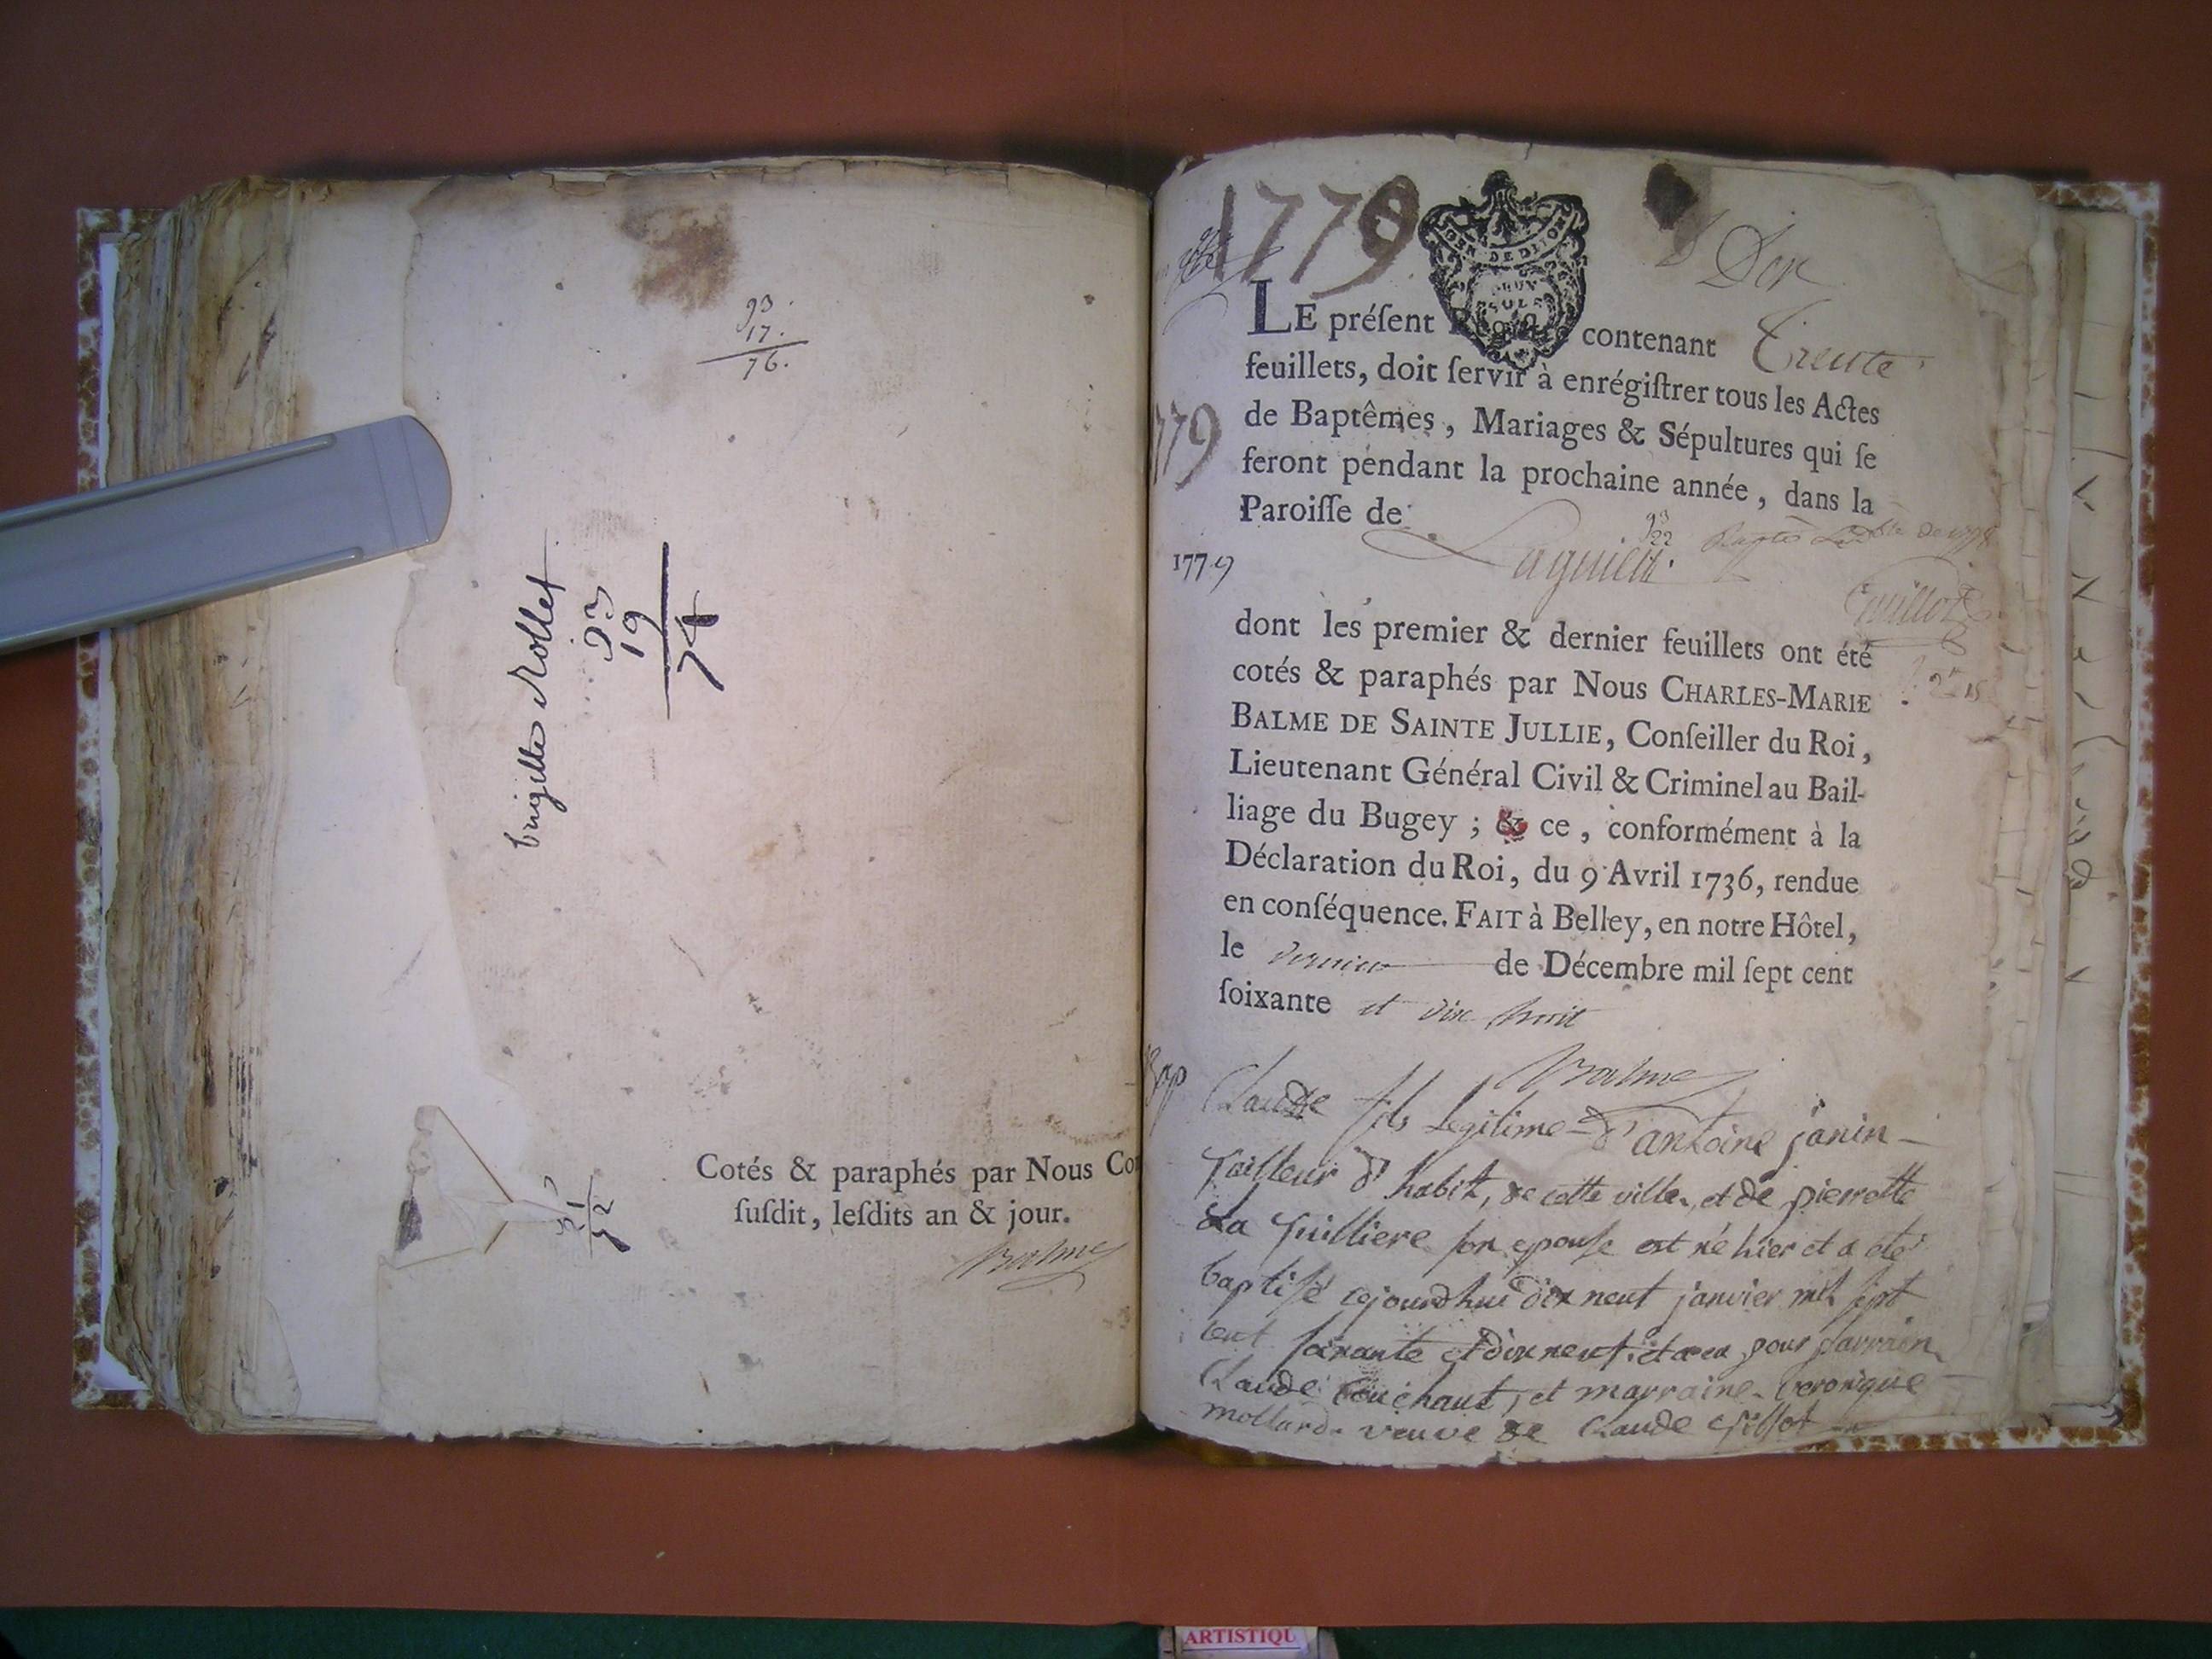 93.
17.
76.
brigitte Rollet
93
19
74
Cotés & paraphés par Nous Co
ſuſdit, leſdits an & jour.
Balme
1779
LE préſent Regiſtre contenant Trente
feuillets, doit ſervir à enrégiſtrer tous les Actes
de Baptêmes, Mariages & Sépultures qui ſe
feront pendant la prochaine année, dans la
Paroiſſe de Lagnieu.
779
93
22
1779
dont les premier & dernier feuillets ont été
cotés & paraphés par Nous CHARLES-MARIE
BALME DE SAINTE JULLIE, Conſeiller du Roi,
Lieutenant Général Civil & Criminel au Bail-
liage du Bugey ; & ce, conformément à la
Déclaration du Roi, du 9 Avril 1736, rendue
en conſéquence. FAIT à Belley, en notre Hôtel,
le dernier de Décembre mil ſept cent
ſoixante et dix huit
Balme
Bap
Claude fils Legitime d'antoine janin
Tailleur d'habit, de cette ville, et de pierrette
La ſon epouſe est né hier et a été
baptiſé cejourdhui dix neuf janvier mil ſept
cent ſoixante et dix neuf. et a eu pour parrain
Claude et marraine veronique
mollard veuve de Claude
ARTISTIQU